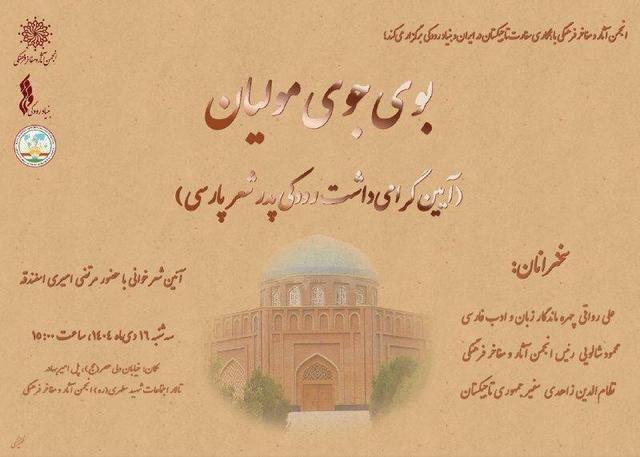 انجمن آثار و مفاخر فرهنگی با همکاری سفارت تاجیکستان در ایران و بنیاد رودکی برگزار می‌کند:
انجمن آثار و مفاخر فرهنگی
بنیاد رودکی
بوی جوی مولیان
(آیین گرامی داشت رودکی پدر شعر پارسی)
سخنرانان:
علی رواقی چهره ماندگار زبان و ادب فارسی
محمود شالویی رئیس انجمن آثار و مفاخر فرهنگی
نظام الدین زاهدی سفیر جمهوری تاجیکستان
آئین شعر خوانی با حضور مرتضی امیری اسفندقه
سه شنبه ۱۶ دی ماه ۱۴۰۴، ساعت ۱۵:۰۰
مکان: خیابان ولی عصر (عج)، پل امیربهادر
تالار اجتماعات شهید مطهری (ره) انجمن آثار و مفاخر فرهنگی